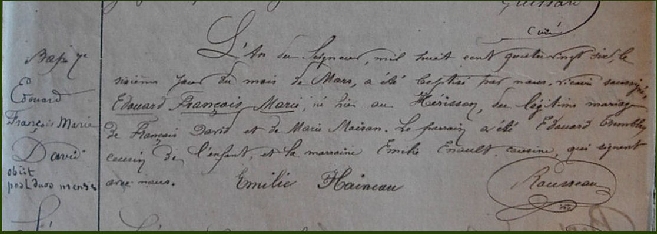 curé
Bap. 7e
Edouard
François Marie
David
obiit
post duos menses
L'An du Seigneur, mil huit cent quatre vingt sept, le
jour du mois de Mars, a été baptisé par nous, vicaire soussigné,
Edouard François Marie, né hier au Hérisson, du légitime mariage
de François David et de Marie Maison. Le parrain a été Edouard
cousin de l'enfant, et la marraine Emilie Enault cousine, qui signent
avec nous. Emilie Rousseau